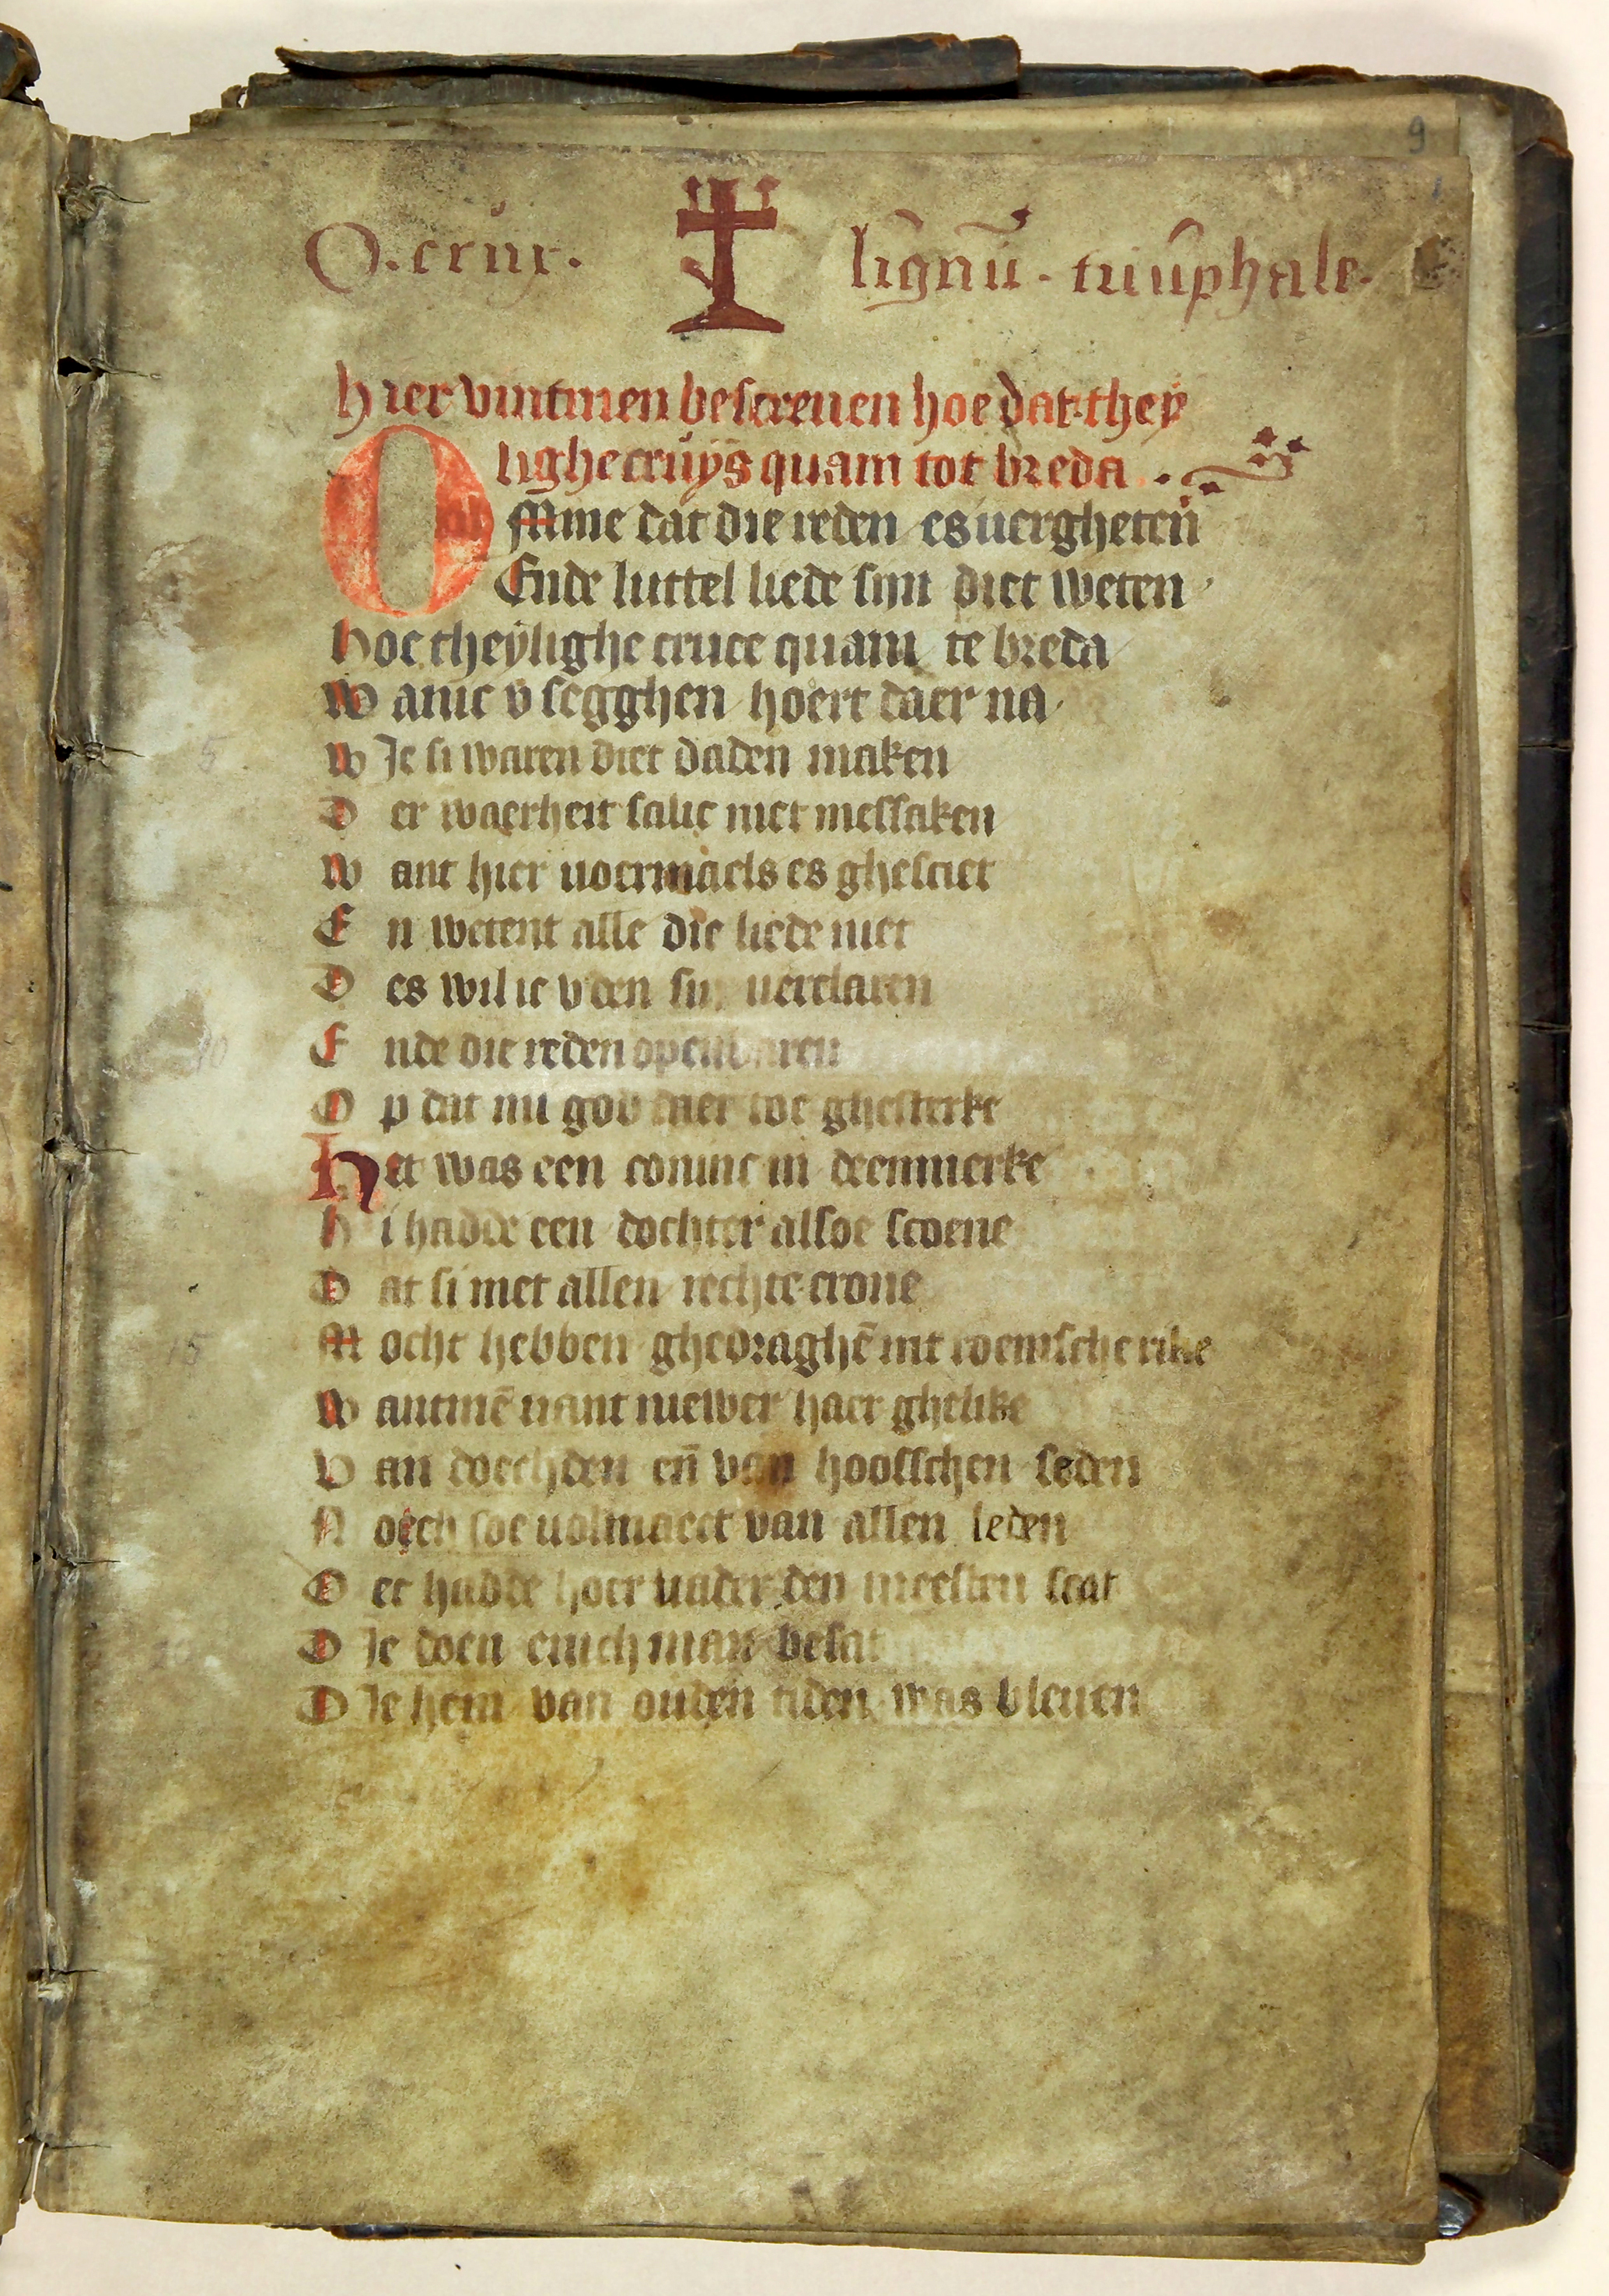 9
O. crux. lignū. triūphale.
hier vintmen bescreuen hoe dat they
lighe cruÿs quam tot breda
Omme dat die reden es uergheten
Ende luttel liede sijn diet weten
hoe theÿlighe cruce quam te breda
Wanic v segghen hoert daer na
Wie si waren diet daden maken
Der waerheit salic niet messaken
Want hier uoermaels es ghesciet
En wetent alle die liede niet
Des wil ic v den uerclaren
Ende die reden openbaren
Op dat mi god daer toe ghesterke
Het was een coninc in deenmerke
hi hadde een dochter alsoe scoene
Dat si met allen rechte crone
Mocht hebben ghedraghē int roemsche rike
Wantmē uant niewer haer ghelike
Van doechden eñ van hoosschen seden
Noech soe uolmaect van allen leden
Oec hadde hoer uader den meesten scat
Die doen enich man besat
Die hem van ouden tiden was bleuen